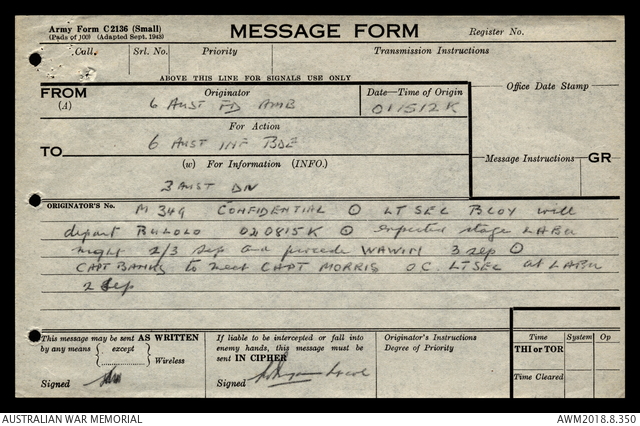 Army Form C2136 (Small)
(Pads of 100) (Adapted Sept. 1943)
MESSAGE FORM
Register No.
Call. Srl. No. Priority Transmission Instructions
ABOVE THIS LINE FOR SIGNALS USE ONLY
FROM (A) Originator Date—Time of Origin
6 AUST FD AMB 011512K
Office Date Stamp
For Action
TO 6 AUST INF BDE
(w) For Information (INFO.)
Message Instructions GR
3 AUST DIV
ORIGINATOR'S No.
M 349 CONFIDENTIAL LT SEC BCOY will
depart BULOLO 020815K expected stage LABU
night 2/3 Sep and WAWIN 3 Sep
CAPT BANKS to meet CAPT MORRIS OC LT SEC at LABU
2 Sep
This message may be sent AS WRITTEN
by any means except
Wireless
Signed
If liable to be intercepted or fall into
enemy hands, this message must be
sent IN CIPHER
Signed
Originator's Instructions
Degree of Priority
Time System Op
THI or TOR
Time Cleared
AUSTRALIAN WAR MEMORIAL AWM2018.8.350